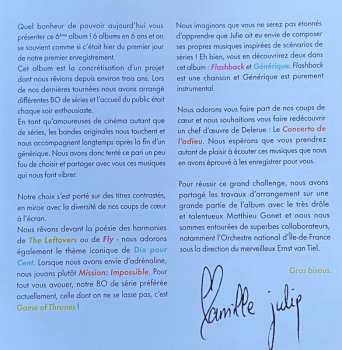 Quel bonheur de pouvoir aujourd'hui vous
présenter ce 6ème album ! 6 albums en 6 ans et on
se souvient comme si c'était hier du premier jour
de notre premier enregistrement.
Cet album est la concrétisation d'un projet
dont nous rêvions depuis environ trois ans. Lors
de nos dernières tournées nous avons arrangé
différentes BO de séries et l'accueil du public était
chaque soir enthousiaste.
En tant qu'amoureuses de cinéma autant que
de séries, les bandes originales nous touchent et
nous accompagnent longtemps après la fin d'un
générique. Nous avons donc tenté ce pari un peu
fou de choisir et partager avec vous ces musiques
qui nous font vibrer.
Notre choix s'est porté sur des titres contrastés,
en miroir avec la diversité de nos coups de cœur
à l'écran.
Nous rêvons devant la poésie des harmonies
de The Leftovers ou de Fly - nous adorons
également le thème iconique de Dix pour
Cent. Lorsque nous avons envie d'adrénaline,
nous jouons plutôt Mission: Impossible. Pour
tout vous avouer, notre BO de série préférée
actuellement, celle dont on ne se lasse pas, c'est
Game of Thrones !
Nous imaginons que vous ne serez pas étonnés
d'apprendre que Julie ait eu envie de composer
ses propres musiques inspirées de scénarios de
séries ! Eh bien, vous en découvrirez deux dans
cet album : Flashback et Générique. Flashback
est une chanson et Générique est purement
instrumental.
Nous adorons vous faire part de nos coups de
cœur et nous souhaitions vous faire redécouvrir
un chef d'œuvre de Delerue : Le Concerto de
l'adieu. Nous espérons que vous prendrez
autant de plaisir à écouter ces musiques que nous
en avons éprouvé à les enregistrer pour vous.
Pour réussir ce grand challenge, nous avons
partagé les travaux d'arrangement sur une
grande partie de l'album avec le très drôle
et talentueux Matthieu Gonet et nous nous
sommes entourées de superbes collaborateurs,
notamment l'Orchestre national d'Île-de-France
sous la direction du merveilleux Ernst van Tiel.
Gros bisous.
Camille Julie